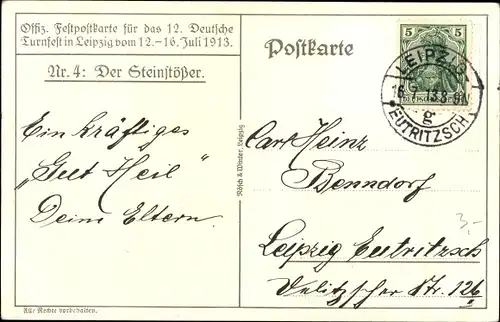 Offiz. Festpostkarte für das 12. Deutsche
Turnfest in Leipzig vom 12.-16. Juli 1913.
Nr. 4: Der Steinstößer.
Ein kräftiges
„Gut Heil"
Deine Eltern.
Alle Rechte vorbehalten.
Rösch & Winter, Leipzig
Postkarte
5 5
LEIPZIG-
13.8-9N
g
* EUTRITZSCH *
Carl Heinz
Benndorf
Leipzig Eutritzsch
Delitzscher Str. 126
3,-